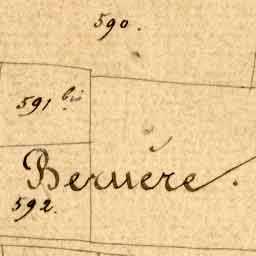 590.
591 bis
Beruère.
592.